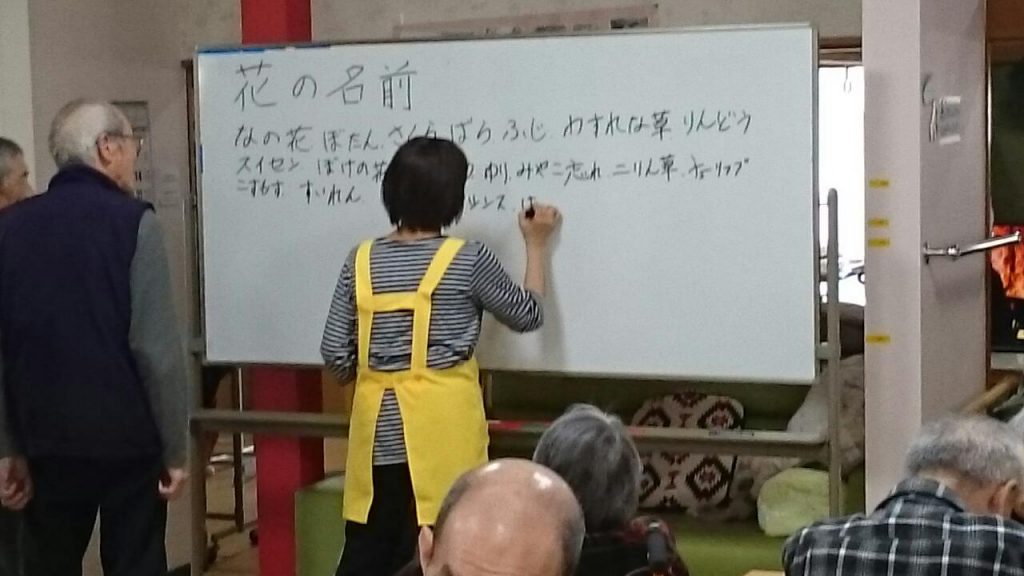 花の名前
なの花 ぼたん、さくら ばら ふじ わすれな草 りんどう
スイセン ぼけの花 ゆり、みやこ忘れ 二りん草、チューリップ
こすもす すいれん